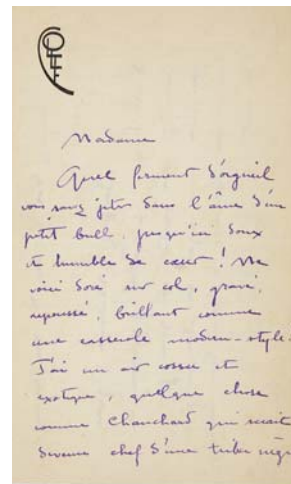 Madame
Quel ferment d'orgueil
vous avez jeté dans l'âme d'un
petit bull, jusqu'ici doux
et humble de cœur ! Me
voici doré sur col, gravé,
repoussé, brillant comme
une casserole modern-style.
J'ai un air cossu et
exotique, quelque chose
comme Chauchard qui serait
devenu chef d'une tribu nèg